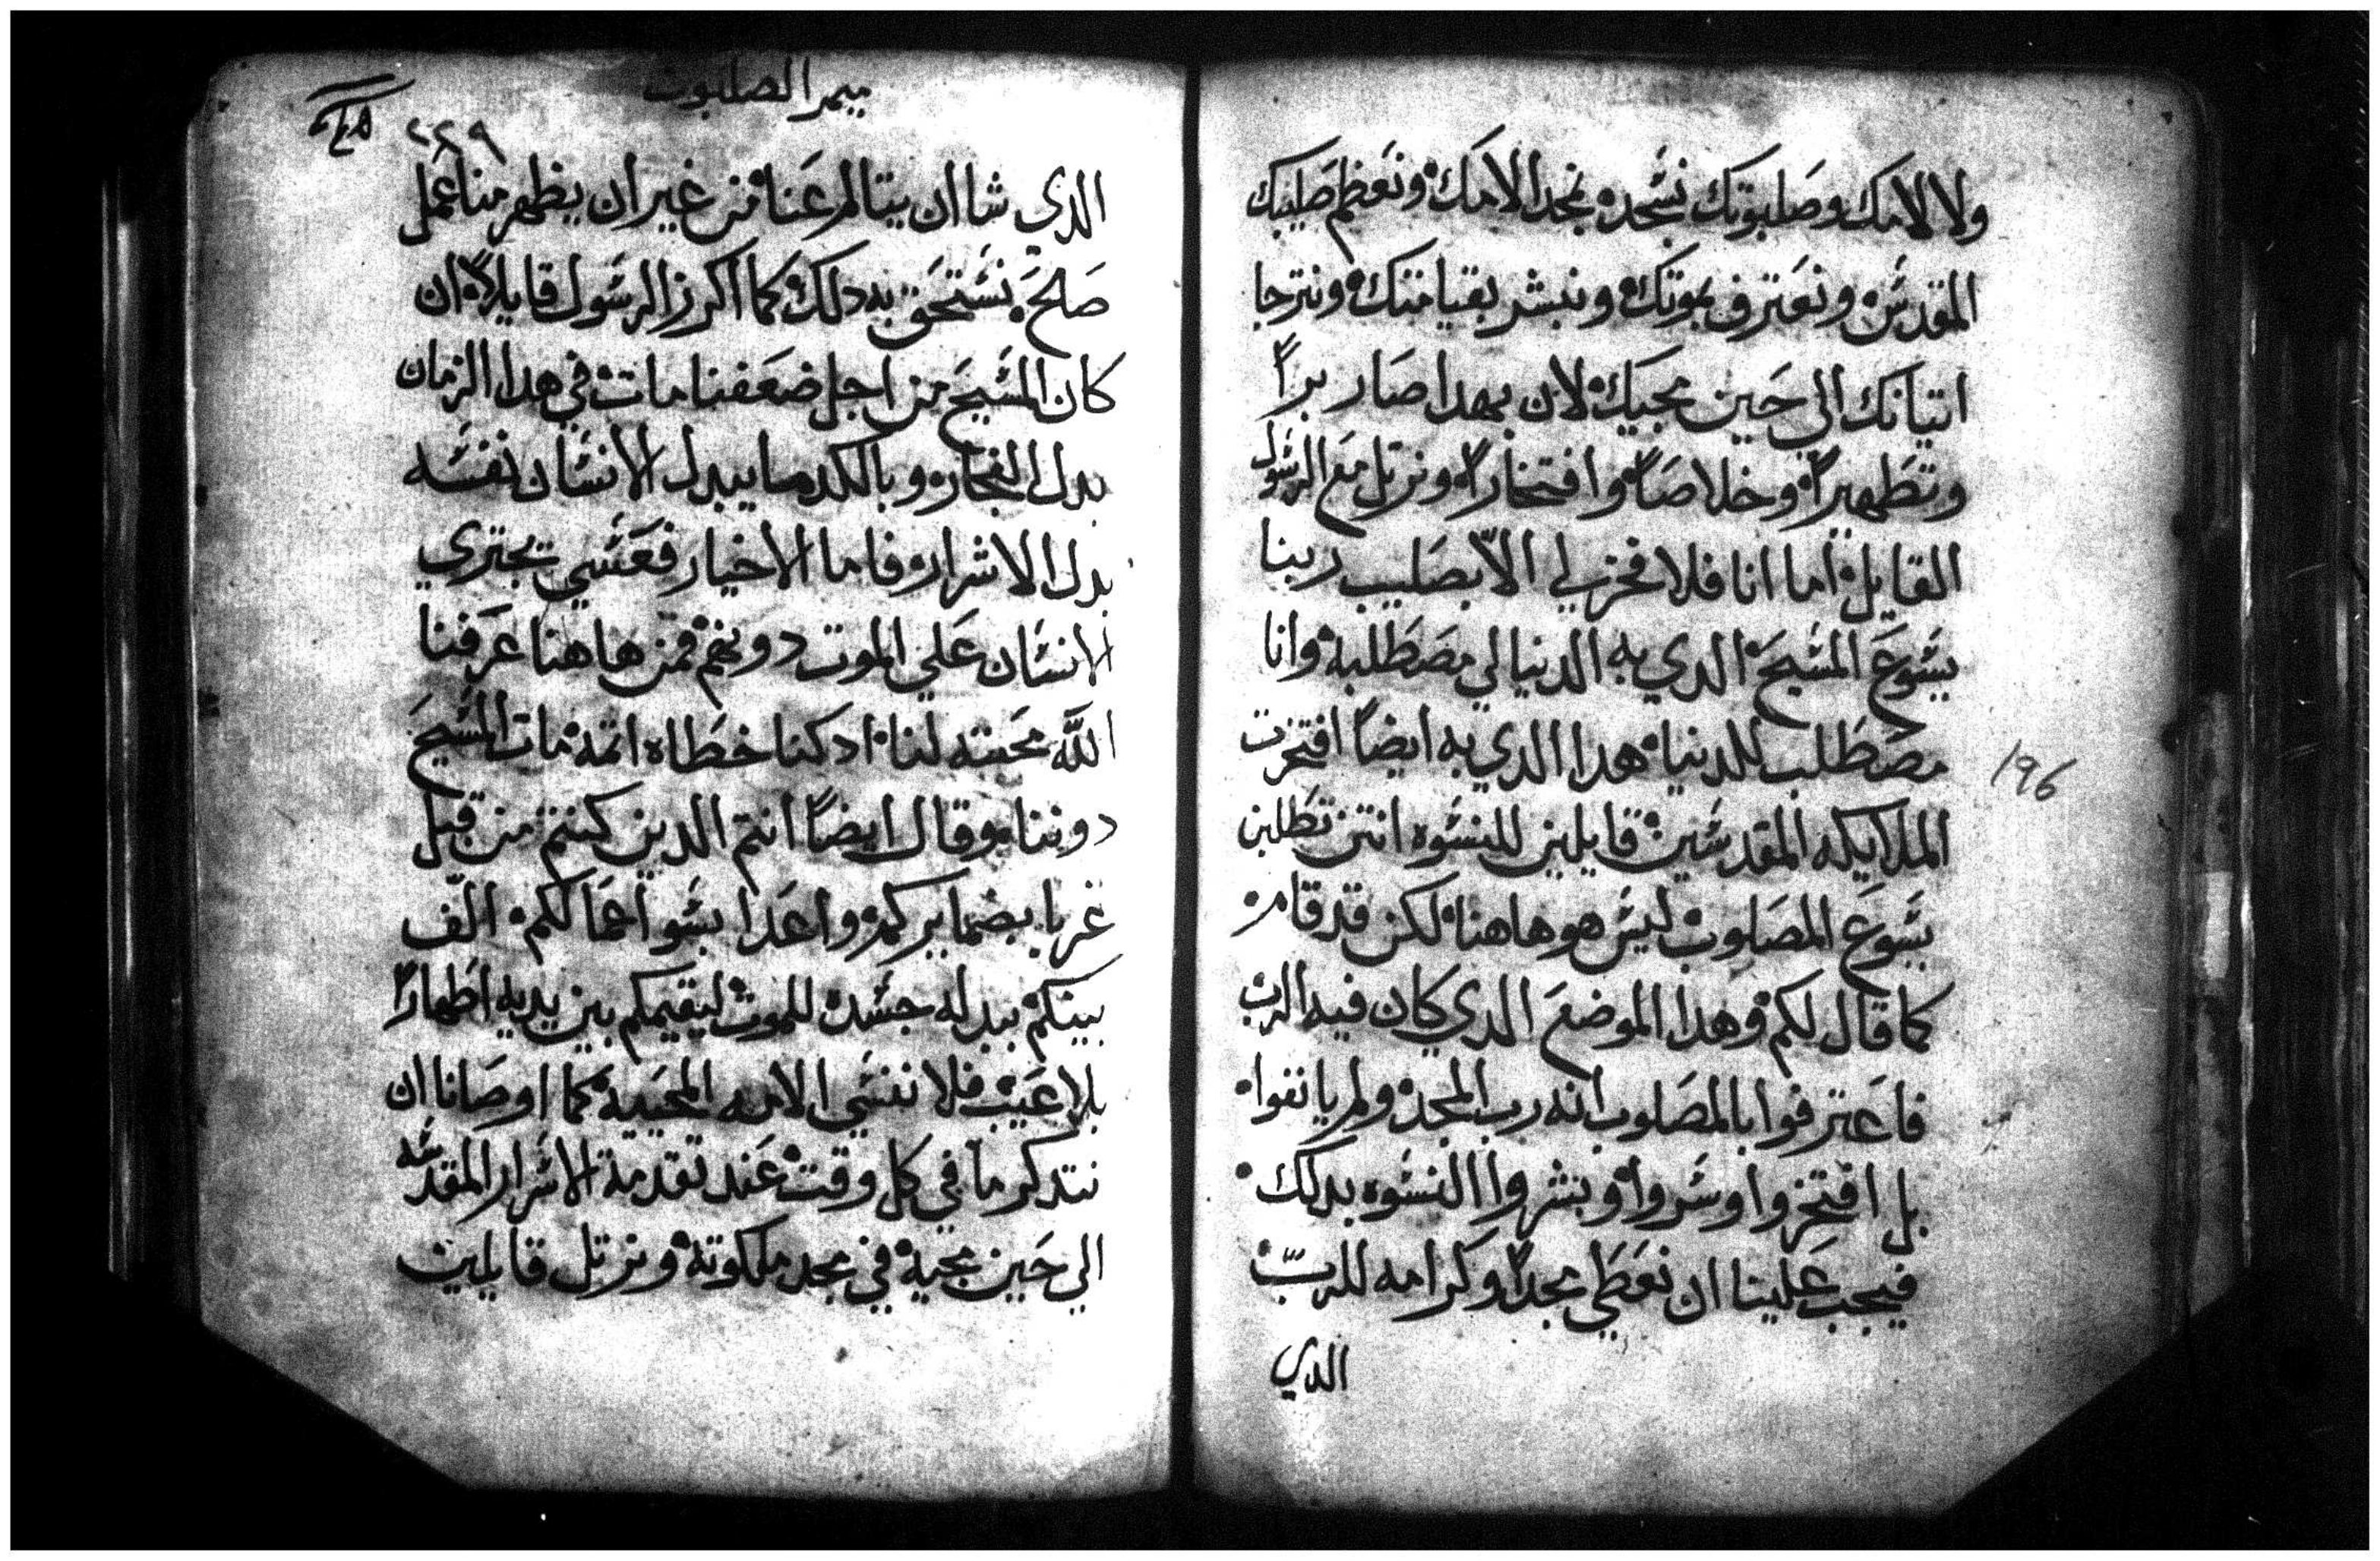 ولا لالامك وصلبوتك نسجده نمجد الامك ونعظم صليبك
المقدس ونعترف بموتك ونبشر بقيامتك ونترجا
اتيانك الي حين مجيك لان بهدا صار براً
وتطهيراً وخلاصاً وافتخاراً ونرتل مع الرسول
القايل اما انا فلا فخر لي الاّ بصليب ربنا
يسوع المسيح الدي به الدنيا لي مصطلبه وانا
مصطلب للدنيا هدا الدي به ايضاً افتخرت
الملايكه المقدسين قايلين للنسوه انتن تطلبن
يسوع المصلوب ليس هو هاهنا لكن قد قام
كما قال لكم وهدا الموضع الدي كان فيه الرب
فاعترفوا بالمصلوب انه رب المجد ولم يانفوا
بل افتخروا وسروا وبشروا النسوه بدلك
فيجب علينا ان نعطي مجداً وكرامه للربّ
الدي
196
ميمر الصلبوت
٢٤٩
الدي شا ان يتالم عنا من غير ان يظهر منا عمل
صالح نستحق به دلك كما اكرز الرسول قايلاً ان
كان المسيح من اجل ضعفنا مات في هدا الزمان
بدل الفجار وبالكد ما يبدل الانسان نفسه
بدل الاشرار فاما الاخيار فعسي يجتري
الانسان علي الموت دونهم فمن هاهنا عرفنا
اللّه محبته لنا اد كنا خطاه اتمه مات المسيح
دوننا وقال ايضاً انتم الدين كنتم من قبل
غربا بضمايركم واعدا بسو اعمالكم الّف
بينكم ببدله جسده للموت ليقيمكم بين يديه اطهاراً
بلا عيب فلا ننسي الامه المحييه كما اوصانا ان
نتدكرها في كل وقت عند تقدمة الاسرار المقدسه
الي حين مجيه في مجد ملكوته ونرتل قايلين